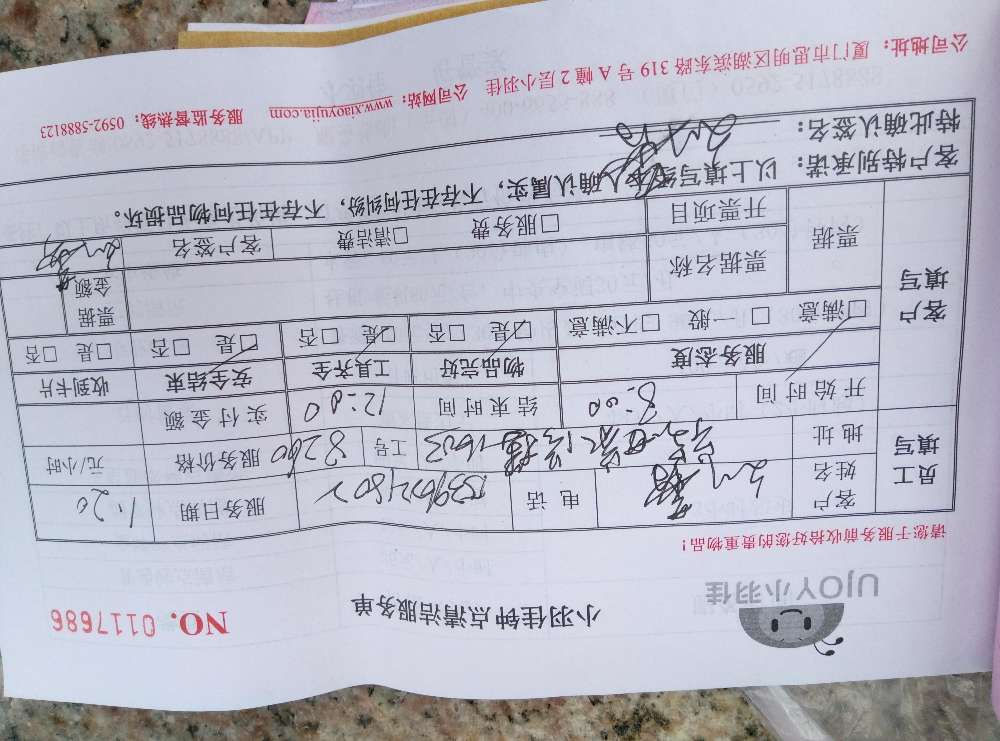 UJOY小羽佳
小羽佳钟点清洁服务单
NO. 0117686
请您于服务前收拾好您的贵重物品!
员工填写
客户姓名
电话
服务日期 1.20
地址
工号 8260
服务价格
元/小时
开始时间 8:00
结束时间 12:00
实付金额
客户填写
服务态度 物品完好 工具齐全 安全结束 收到卡片
□满意 □ 般 □不满意 □是 □否 □是 □否 □是 □否 □是 □否
票据
票据名称
票据金额
开票项目
□服务费 □清洁费
客户签名
客户特别承诺:以上填写经本人确认属实,不存在任何纠纷,不存在任何物品损坏。
特此确认签名:
公司地址:厦门市思明区湖滨东路 319 号 A 幢 2 层小羽佳 公司网站:www.xiaoyujia.com 服务监督热线:0592-5888123